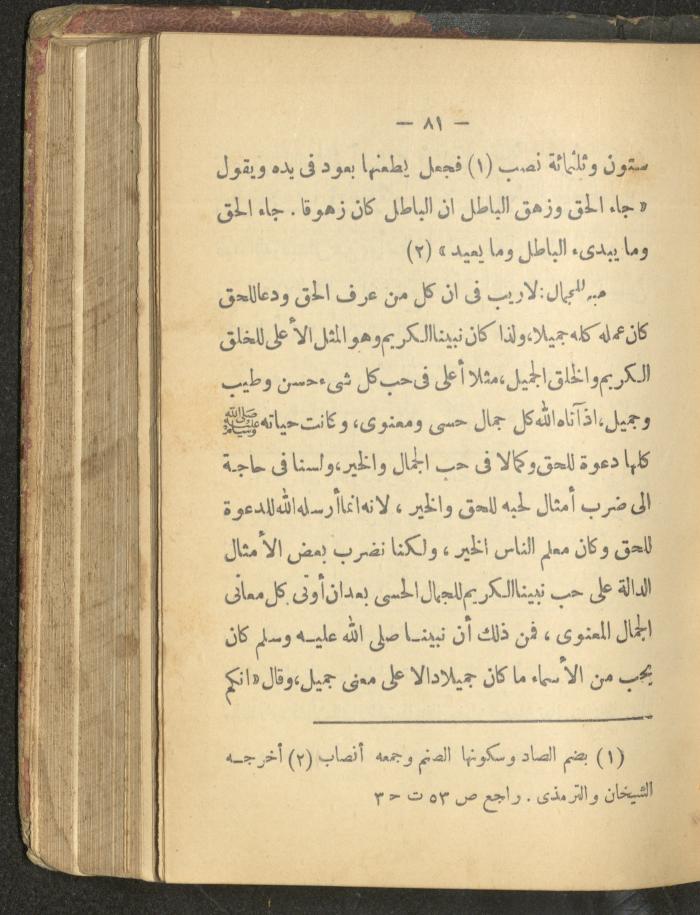 — ٨١ —
ستون وثلثمائة نصب (١) فجعل يطعنها بعود فى يده ويقول
« جاء الحق وزهق الباطل ان الباطل كان زهوقا . جاء الحق
وما يبدىء الباطل وما يعيد » (٢)
حبه للجمال: لاريب فى ان كل من عرف الحق ودعا للحق
كان عمله كله جميلا، ولذا كان نبينا الكريم وهو المثل الأعلى للخلق
الكريم والخلق الجميل، مثلا أعلى فى حب كل شىء حسن وطيب
وجميل، اذ آتاه الله كل جمال حسى ومعنوى، وكانت حياته ﷺ
كلها دعوة للحق وكمالا فى حب الجمال والخير، ولسنا فى حاجة
الى ضرب أمثال لحبه للحق والخير ، لانه انما أرسله الله للدعوة
للحق وكان معلم الناس الخير ، ولكنا نضرب بعض الأمثال
الدالة على حب نبينا الكريم للجمال الحسى بعد ان أوتى كل معانى
الجمال المعنوى ، فمن ذلك أن نبينا صلى الله عليه وسلم كان
يحب من الأسماء ما كان جميلا دالا على معنى جميل، وقال « انكم
(١) بضم الصاد وسكونها الصنم وجمعه أنصاب (٢) أخرجه
الشيخان والترمذى . راجع ص ٥٣ ت ح ٣